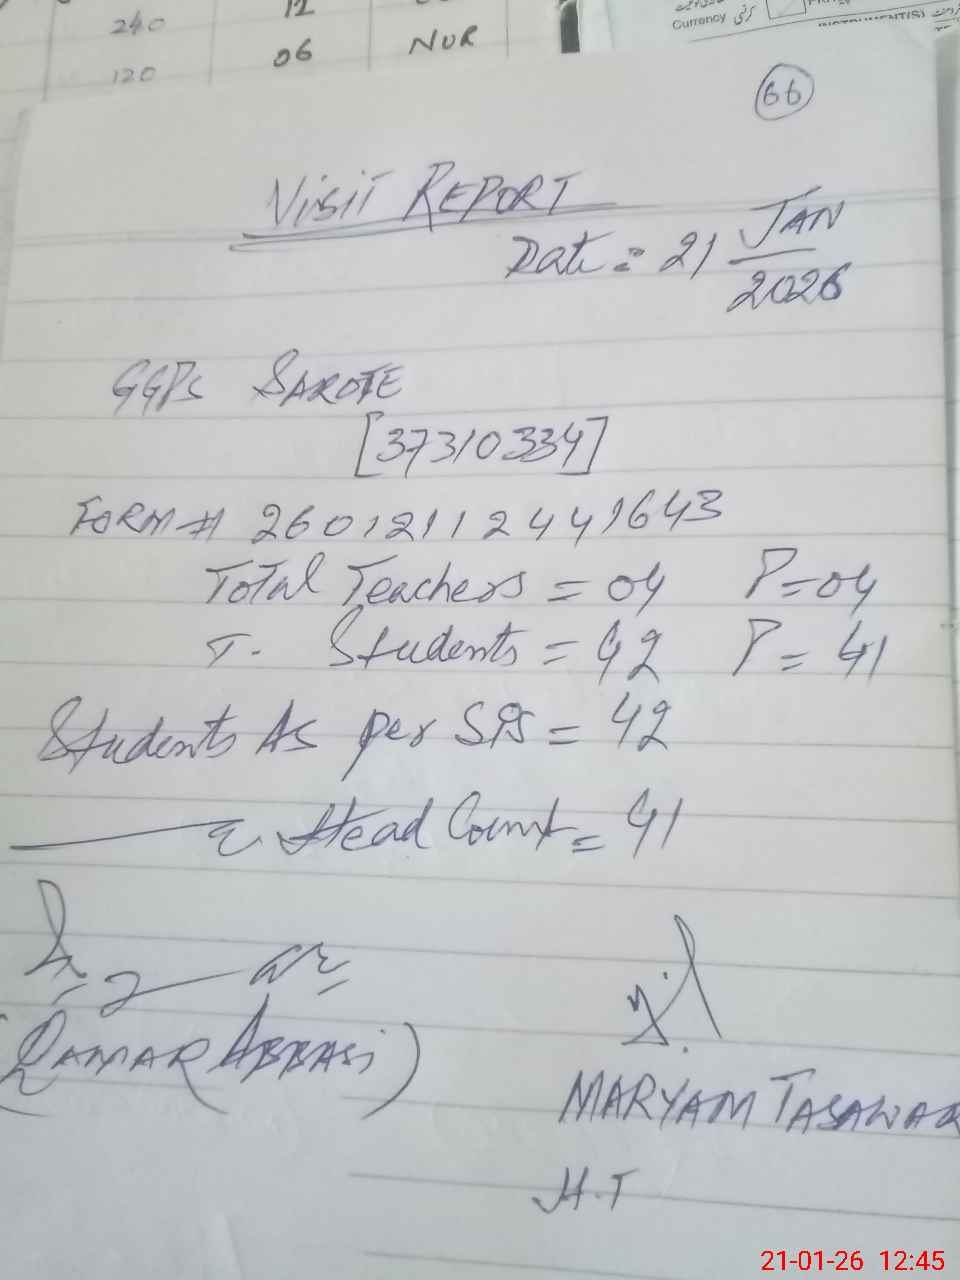 240 12
120 06 NUR
Currency
INSTRUMENT(S)
66
VISIT REPORT
Date = 21 JAN
2026
GGPS SAROTE
[37310334]
FORM # 260121124441643
Total Teachers = 04 P=04
T. Students = 42 P = 41
Students As per SIS = 42
Head Count = 41
(QAMAR ABBASI)
MARYAM TASAWAR
H.T
21-01-26 12:45